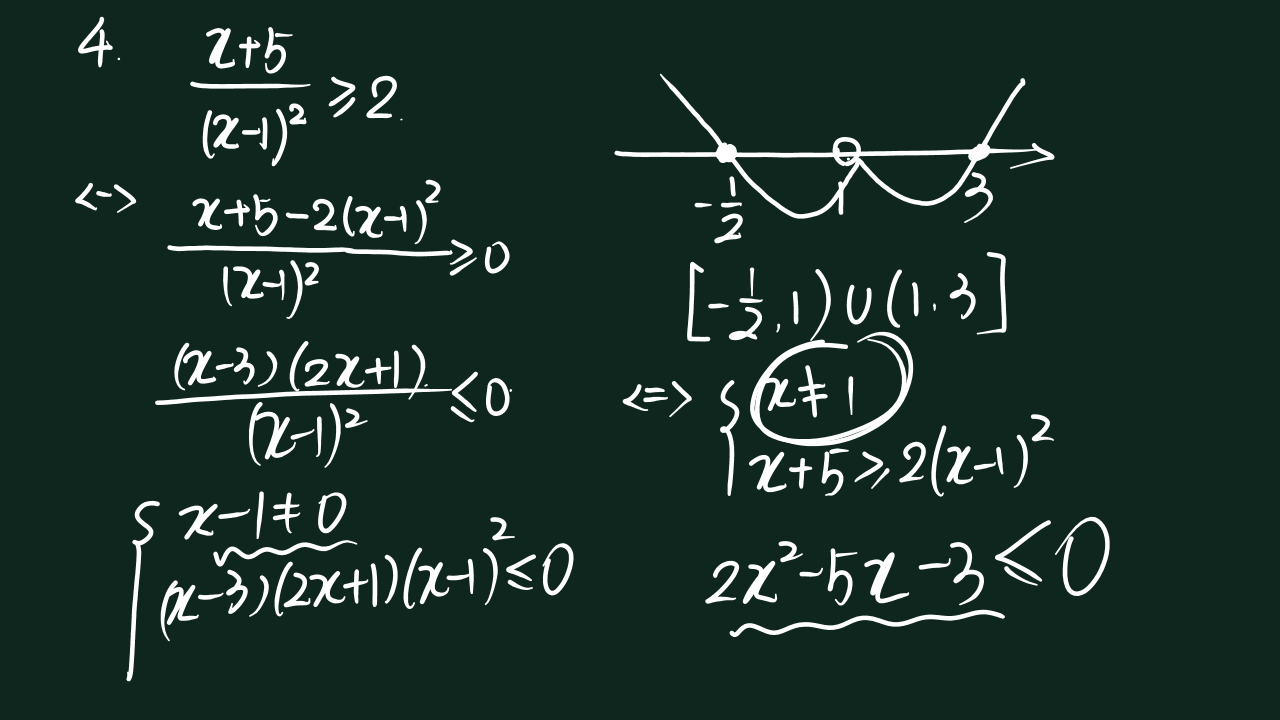 4. (x+5)/(x-1)² ≥ 2.
<-> (x+5-2(x-1)²)/(x-1)² ≥ 0
(x-3)(2x+1)/(x-1)² ≤ 0
{ x-1≠0
(x-3)(2x+1)(x-1)² ≤ 0
-1/2 1 3
[-1/2, 1) ∪ (1, 3]
<=> { x≠1
x+5 ≥ 2(x-1)²
2x²-5x-3 ≤ 0